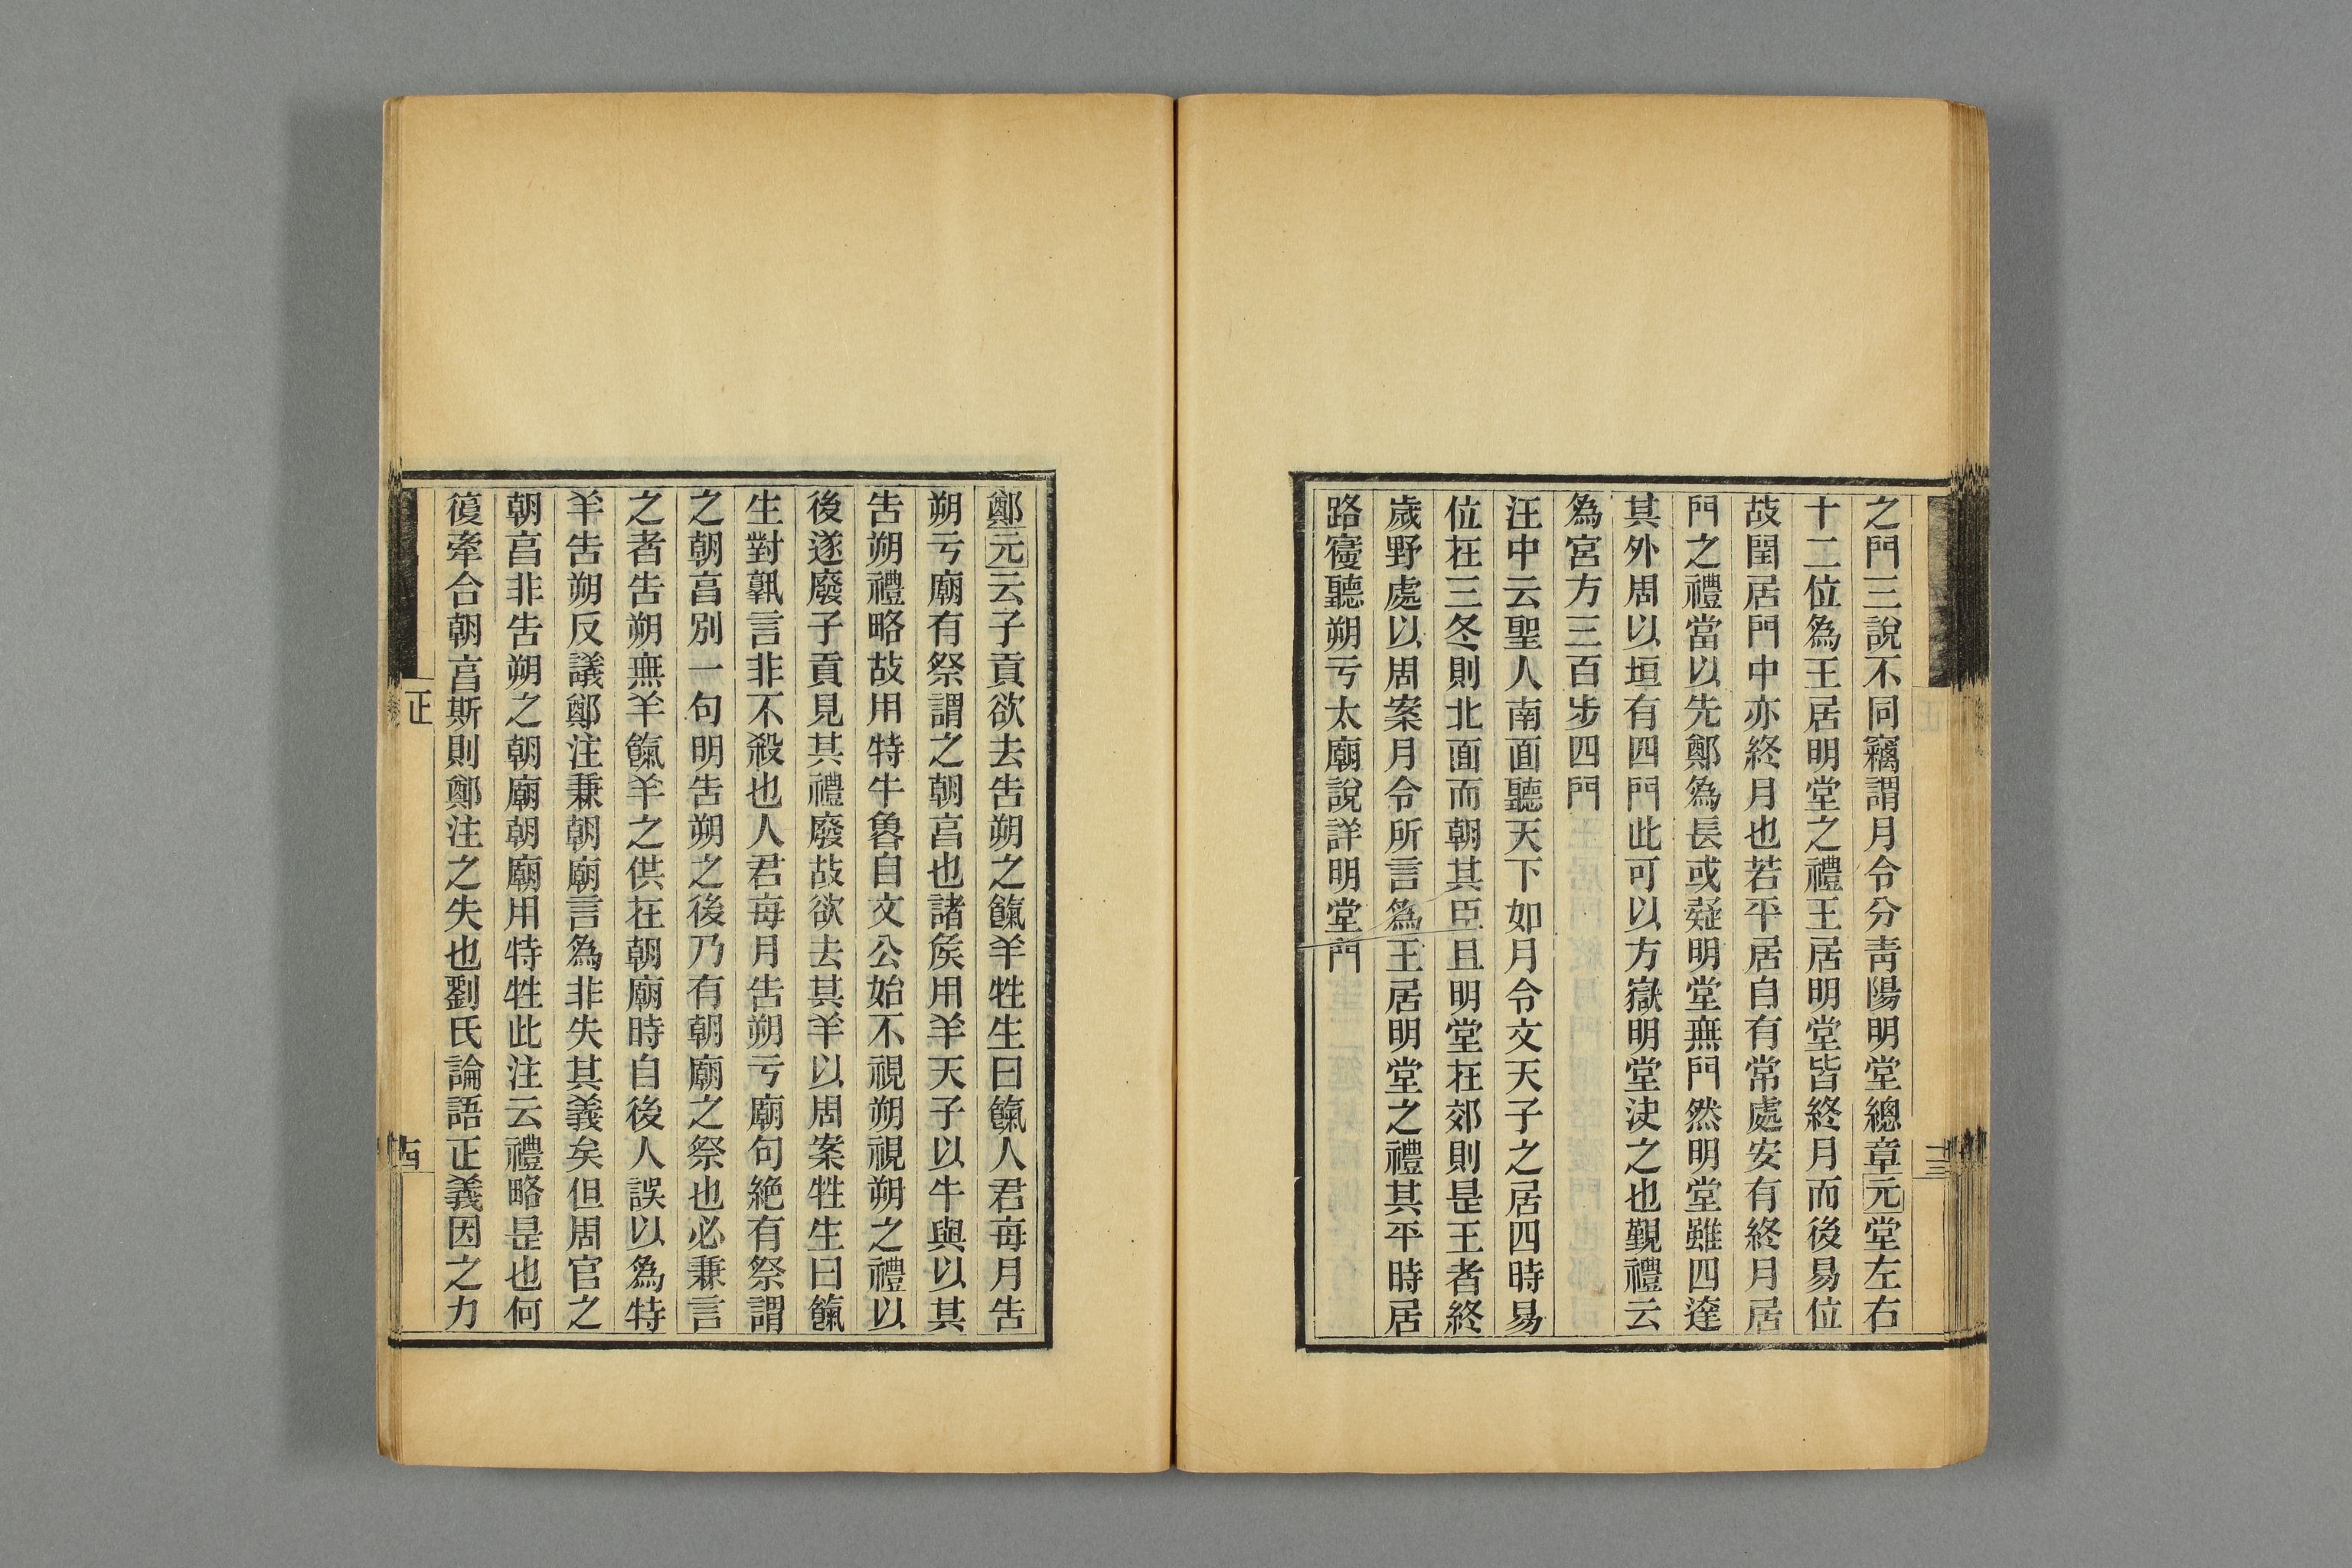 之門三說不同竊謂月令分靑陽明堂總章元堂左右
十二位爲王居明堂之禮王居明堂皆終月而後易位
故閏居門中亦終月也若平居自有常處安有終月居
門之禮當以先鄭爲長或疑明堂無門然明堂雖四達
其外周以垣有四門此可以方嶽明堂決之也覲禮云
爲宮方三百步四門
汪中云聖人南面聽天下如月令文天子之居四時易
位在三冬則北面而朝其臣且明堂在郊則是王者終
歲野處以周案月令所言爲王居明堂之禮其平時居
路寑聽朔亏太廟說詳明堂門
三
鄭元云子貢欲去告朔之餼羊牲生曰餼人君每月告
朔亏廟有祭謂之朝亯也諸侯用羊天子以牛與以其
告朔禮略故用特牛魯自文公始不視朔視朔之禮以
後遂廢子貢見其禮廢故欲去其羊以周案牲生曰餼
生對孰言非不殺也人君每月告朔亏廟句絶有祭謂
之朝亯別一句明告朔之後乃有朝廟之祭也必兼言
之者告朔無羊餼羊之供在朝廟時自後人誤以爲特
羊告朔反議鄭注兼朝廟言爲非失其義矣但周官之
朝亯非告朔之朝廟朝廟用特牲此注云禮略是也何
復牽合朝亯斯則鄭注之失也劉氏論語正義因之力
正
古